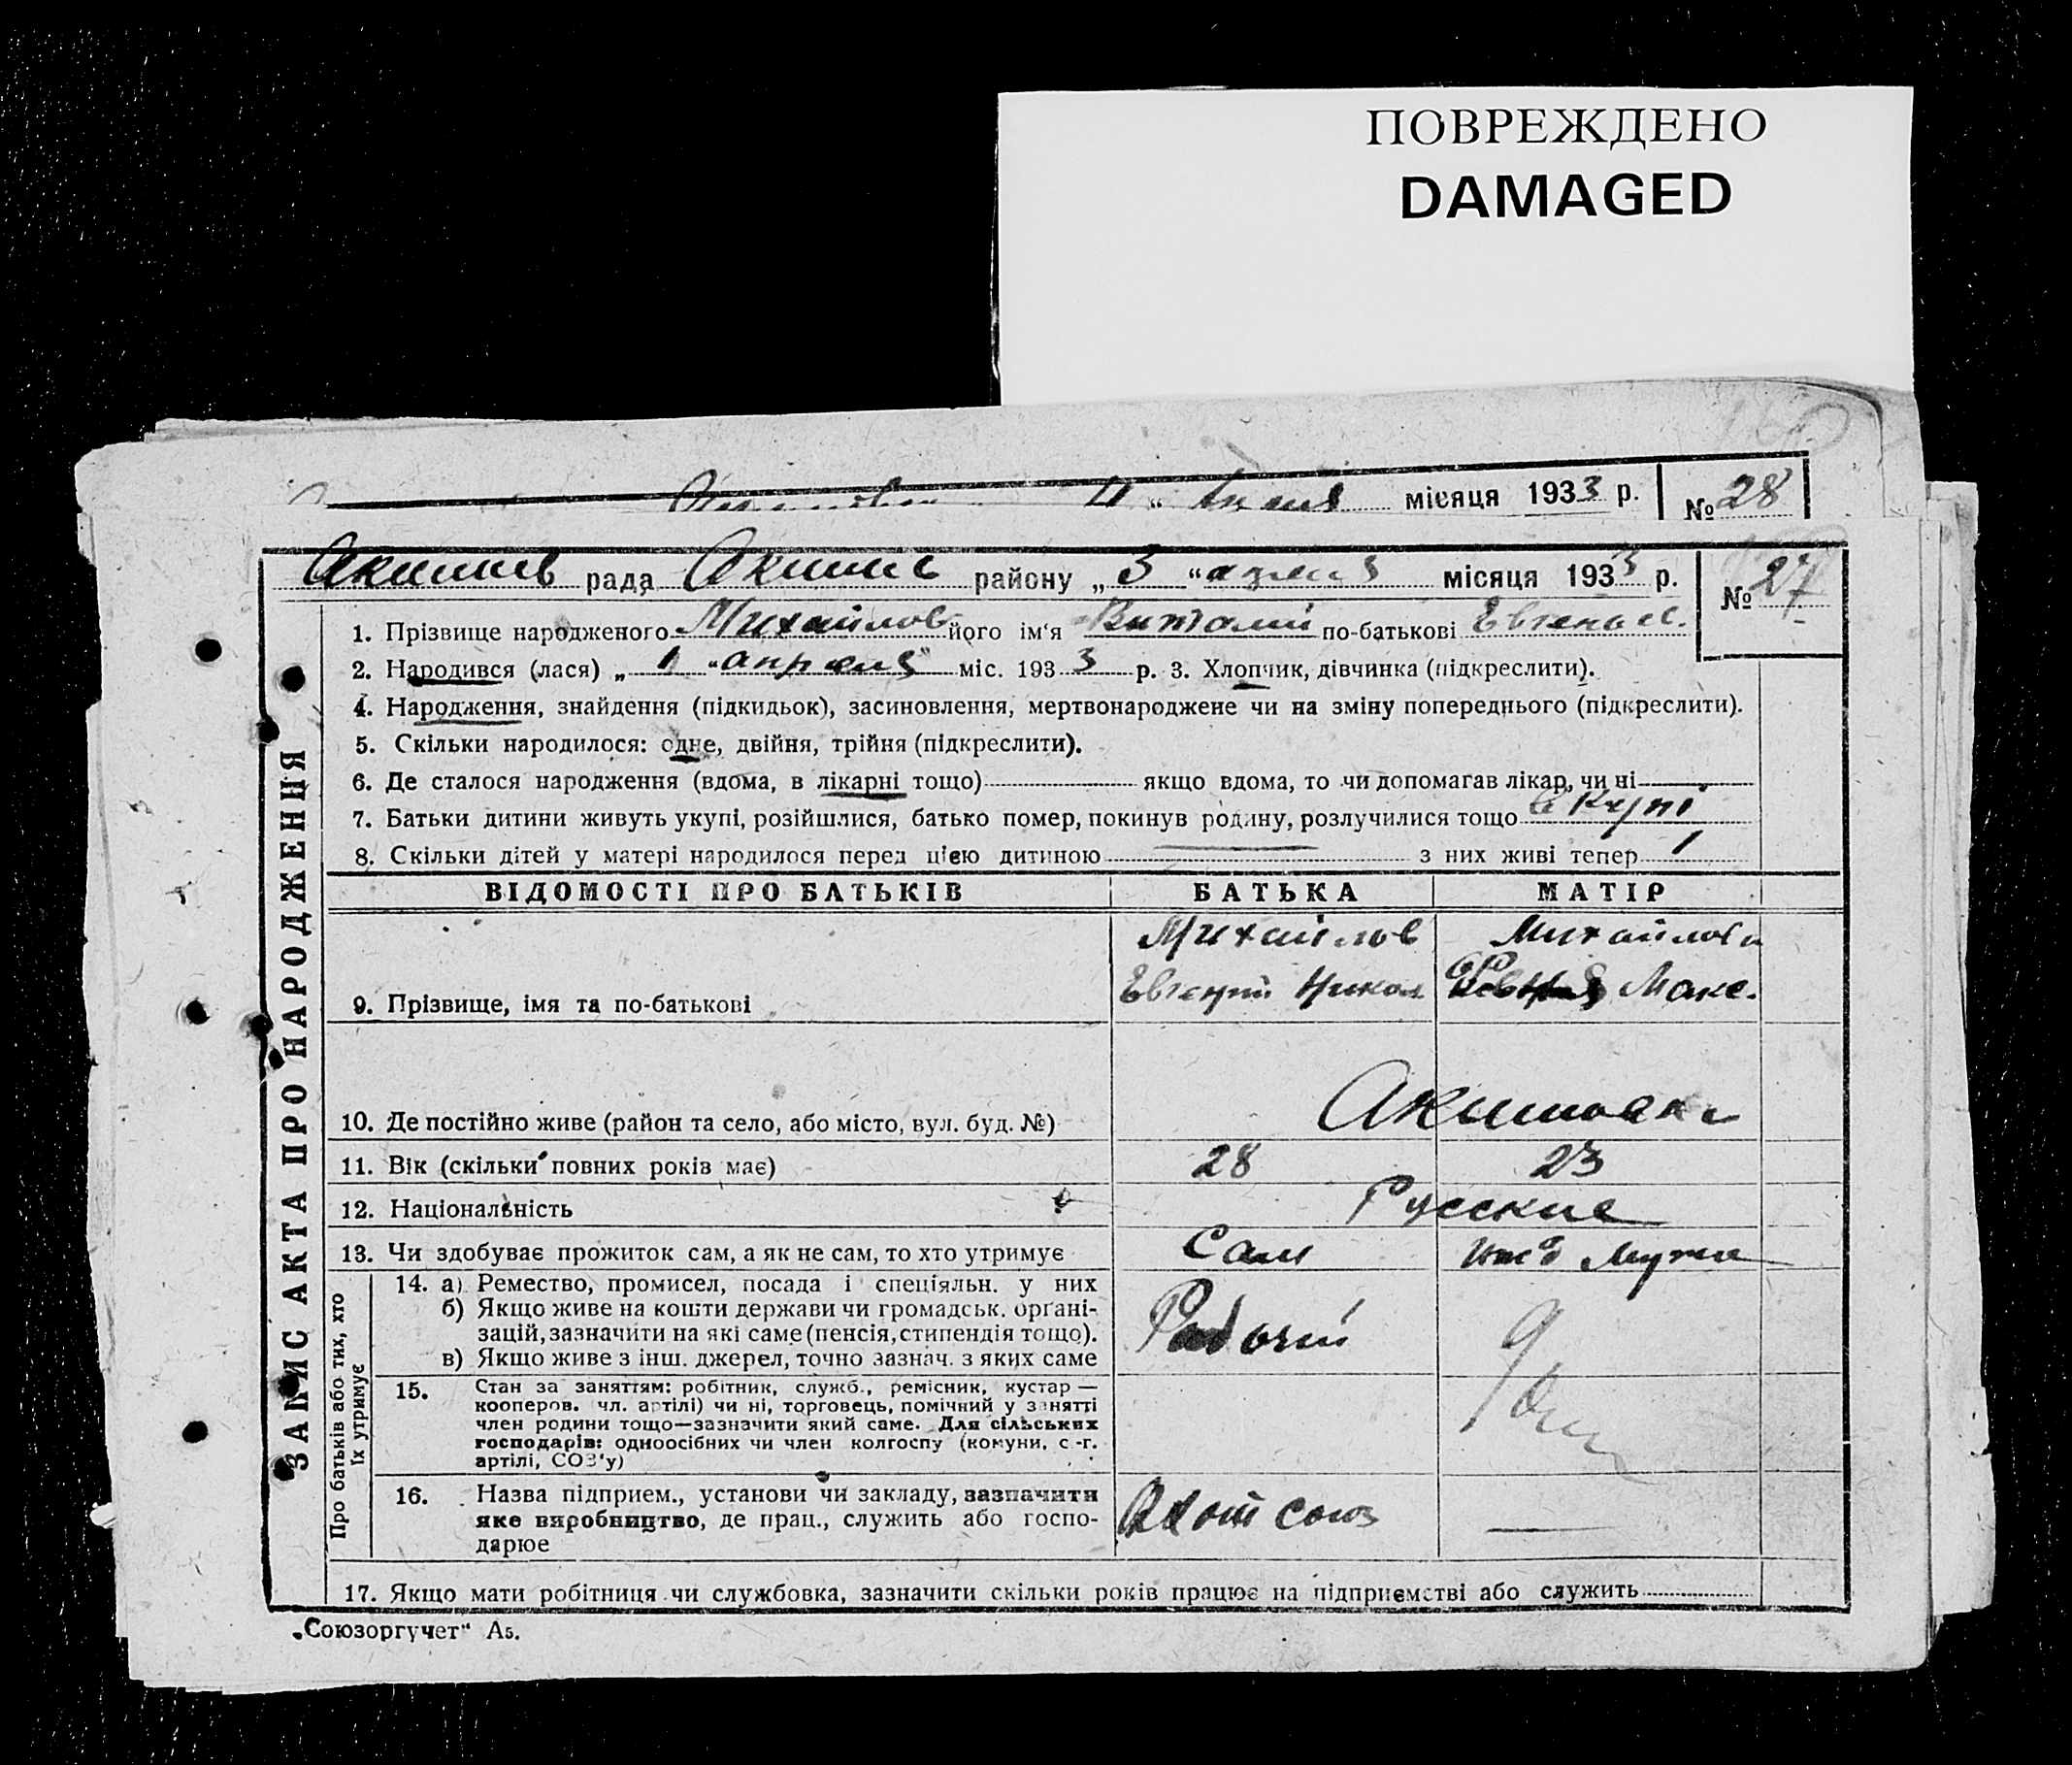 ПОВРЕЖДЕНО
DAMAGED
4 " місяця 1933 р. № 28
Акимів рада Акимів району „ 3 " апреля місяця 1933 р. № 27
1. Прізвище народженого Михайлов його ім'я Виталий по-батькові Евгеньев.
2. Народився (лася) „ 1 " апреля міс. 1933 р. 3. Хлопчик, дівчинка (підкреслити).
4. Народження, знайдення (підкидьок), засиновлення, мертвонароджене чи на зміну попереднього (підкреслити).
5. Скільки народилося: одне, двійня, трійня (підкреслити).
6. Де сталося народження (вдома, в лікарні тощо) якщо вдома, то чи допомагав лікар, чи ні
7. Батьки дитини живуть укупі, розійшлися, батько помер, покинув родину, розлучилися тощо вкупі
8. Скільки дітей у матері народилося перед цією дитиною з них живі тепер 1
ЗАПИС АКТА ПРО НАРОДЖЕННЯ
ВІДОМОСТІ ПРО БАТЬКІВ БАТЬКА МАТІР
Михайлов Михайлова
9. Прізвище, імя та по-батькові Евгений Никол. Макс.
10. Де постійно живе (район та село, або місто, вул. буд. №) Акимовка
11. Вік (скільки повних років має) 28 23
12. Національність Русские
13. Чи здобуває прожиток сам, а як не сам, то хто утримує Сам мужа
Про батьків або тих, хто
їх утримує
14. а) Ремество, промисел, посада і спеціяльн. у них
б) Якщо живе на кошти держави чи громадськ. органі-
зацій, зазначити на які саме (пенсія, стипендія тощо). Рабочий
в) Якщо живе з інш. джерел, точно зазнач. з яких саме
15. Стан за заняттям: робітник, служб., ремісник, кустар —
кооперов. чл. артілі) чи ні, торговець, помічний у занятті
член родини тощо—зазначити який саме. Для сільських
господарів: одноосібних чи член колгоспу (комуни, с.-г.
артілі, СОЗ'у)
16. Назва підприєм., установи чи закладу, зазначити
яке виробництво, де прац., служить або госпо- союз
дарює
17. Якщо мати робітниця чи службовка, зазначити скільки років працює на підприємстві або служить
„Союзоргучет" А5.